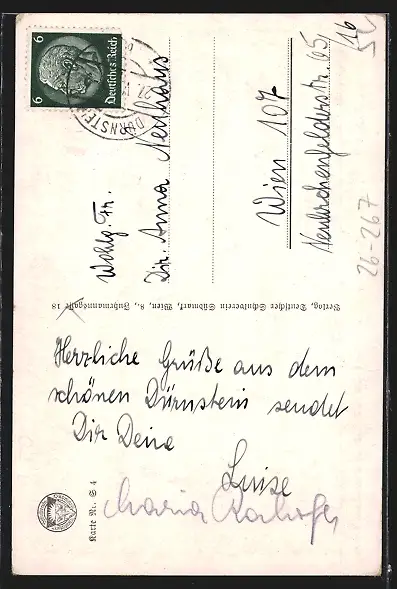 Herzliche Grüße aus dem
schönen Dürnstein sendet
Dir Deine
Luise
Maria
Karte Nr. S 4
Verlag, Deutscher Schulverein Südmark, Wien, 8., Fuhrmannsgasse 18
Wohlg. Fr.
Dir. Anna Neuhaus
Wien 107
Neulerchenfelderstr. 65/16
Deutsches Reich
6
6
DÜRNSTEIN
26-267